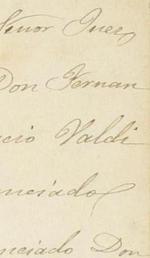 Señor Juez
Don Fernan
acio Valdi
enciado
enciado Don